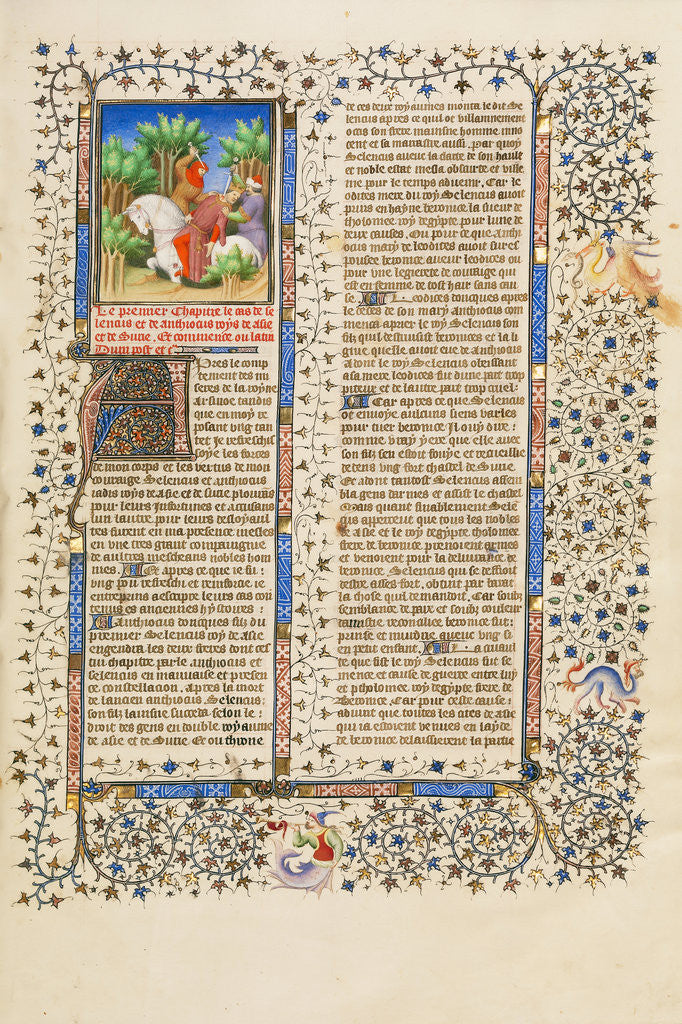 Le premier chapitre le cas de se
lencus et de anthiocus roys de asie
et de surie. Et commence ou latin
Dum post et c
Apres le comp
tement des mi
seres de la royne
Arsinoe tandis
que en moy re
posant ung tan
tet Je refreschis
soye les forces
de mon corps et les vertus de mon
couraige Selencus et anthiocus
iadis roys de asie et de surie plourans
pour leurs infortunes et accusans
lun lautre pour leurs desloyaul
tes furent en ma presence meslez
en une tres grant compaignie
de aultres meschans nobles hom
mes. Et apres ce que ie fu
ung pou refreschi et renforcie ie
entreprins a escripre leurs cas con
tenus es anciennes hystoires:
Anthiocus doncques filz du
premier Selencus roy de asie
engendra les deux freres dont cest
cy chapitre parle anthiocus et
selencus en mauvaise et presen
ce constellacion. Apres la mort
de lancien anthiocus Selencus
son filz lainsne succeda selon le
droit des gens en double royaume
de asie et de surie. Et ou throne
de ces deux royaumes monta le dit Se
lencus apres ce quil ot villainnement
occis son frere mainsne homme inno
cent et sa marastre aussi. par quoy
Selencus avecques la clarte de son hault
et noble estat mesla obscurte et ville
nie pour le temps advenir. Car le
odices mere du roy Selencus avoit
prins en hayne beronice la sueur de
tholomee roy degypte pour lune de
deux causes. Ou pour ce que anthio
cus mary de leodices avoit sures
pousee beronice avecques leodices ou
pour une legierete de couraige qui
est en femme de tost hair sans cau
se. Leodices doncques apres
le deces de son mary anthiocus com
menca a prier le roy Selencus son
filz quil destruisist beronices et la li
gnie quelle avoit eue de anthiocus
Adont le roy Selencus obeissant
a sa mere leodices fu dune part trop
piteux et de lautre part trop cruel:
Car apres ce que Selencus
ot envoye aulcuns siens varles
pour tuer beronice Il ouy dire:
comme vray yere que elle avec
son filz sen estoit fouye et recueillie
dedens ung fort chastel de surie.
Et adont tantost Selencus assem
bla gens darmes et assist le chastel
Mais quant finablement Sele
cus apperceut que tous les nobles
de asie et le roy degypte tholomee
frere de beronice prenoient armes
et venoient pour la delivrance de
beronice. Selencus qui se deffioit
destre asses fort. obtint par barat
la chose quil demandoit. Car soubz
semblance de paix et soubz couleur
destre reconcilie beronice fut
prinse et murdrie avecques ung si
en petit enfant. La cruaul
te que fist le roy Selencus fut se
mence et cause de guerre entre luy
et ptholomee roy degypte frere de
beronice. Car pour ceste cause:
advint que toutes les cites de asie
qui ia estoient venues en layde
de beronice delaisserent la partie